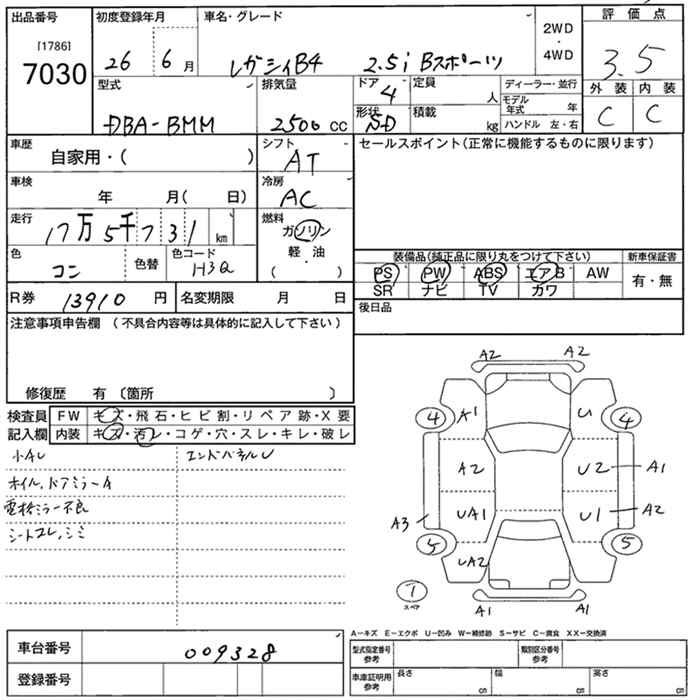 出品番号
[1786]
7030
初度登録年月
26 6月
車名・グレード
レガシィB4 2.5i Bスポーツ
2WD
・
4WD
評価点
3.5
外装 内装
C C
型式
DBA-BMM
排気量
2500 cc
ドア
4
形状
SD
定員
人
積載
kg
ディーラー・並行
モデル年式 年
ハンドル 左・右
車歴
自家用・( )
シフト
AT
セールスポイント(正常に機能するものに限ります)
車検
年 月( 日)
冷房
AC
走行
17万5千731 km
燃料
ガソリン
軽・油
( )
色
コン
色替
色コード
H3Q
装備品(純正品に限り丸をつけて下さい)
新車保証書
PS PW ABS エアB AW
有・無
SR ナビ TV カワ
R券 13910 円
名変期限 月 日
後日品
注意事項申告欄 (不具合内容等は具体的に記入して下さい)
修復歴 有 〔箇所 〕
検査員
記入欄
FW キズ・飛石・ヒビ割・リペア跡・X要
内装 キズ・汚レ・コゲ・穴・スレ・キレ・破レ
小AU
エンドパネルU
ホイル、ドアミラーA
電格ミラー不良
シートコレ、シミ
A2 A2
4 A1 U 4
A2 U2 A1
A3 UA1 U1 A2
5 UA2 5
T
スペア
A1 A1
A−キズ E−エクボ U−凹み W−補修跡 S−サビ C−腐食 XX−交換済
車台番号
009328
登録番号
型式指定番号
参考
類別区分番号
参考
車庫証明用
参考
長さ cm
幅 cm
高さ cm